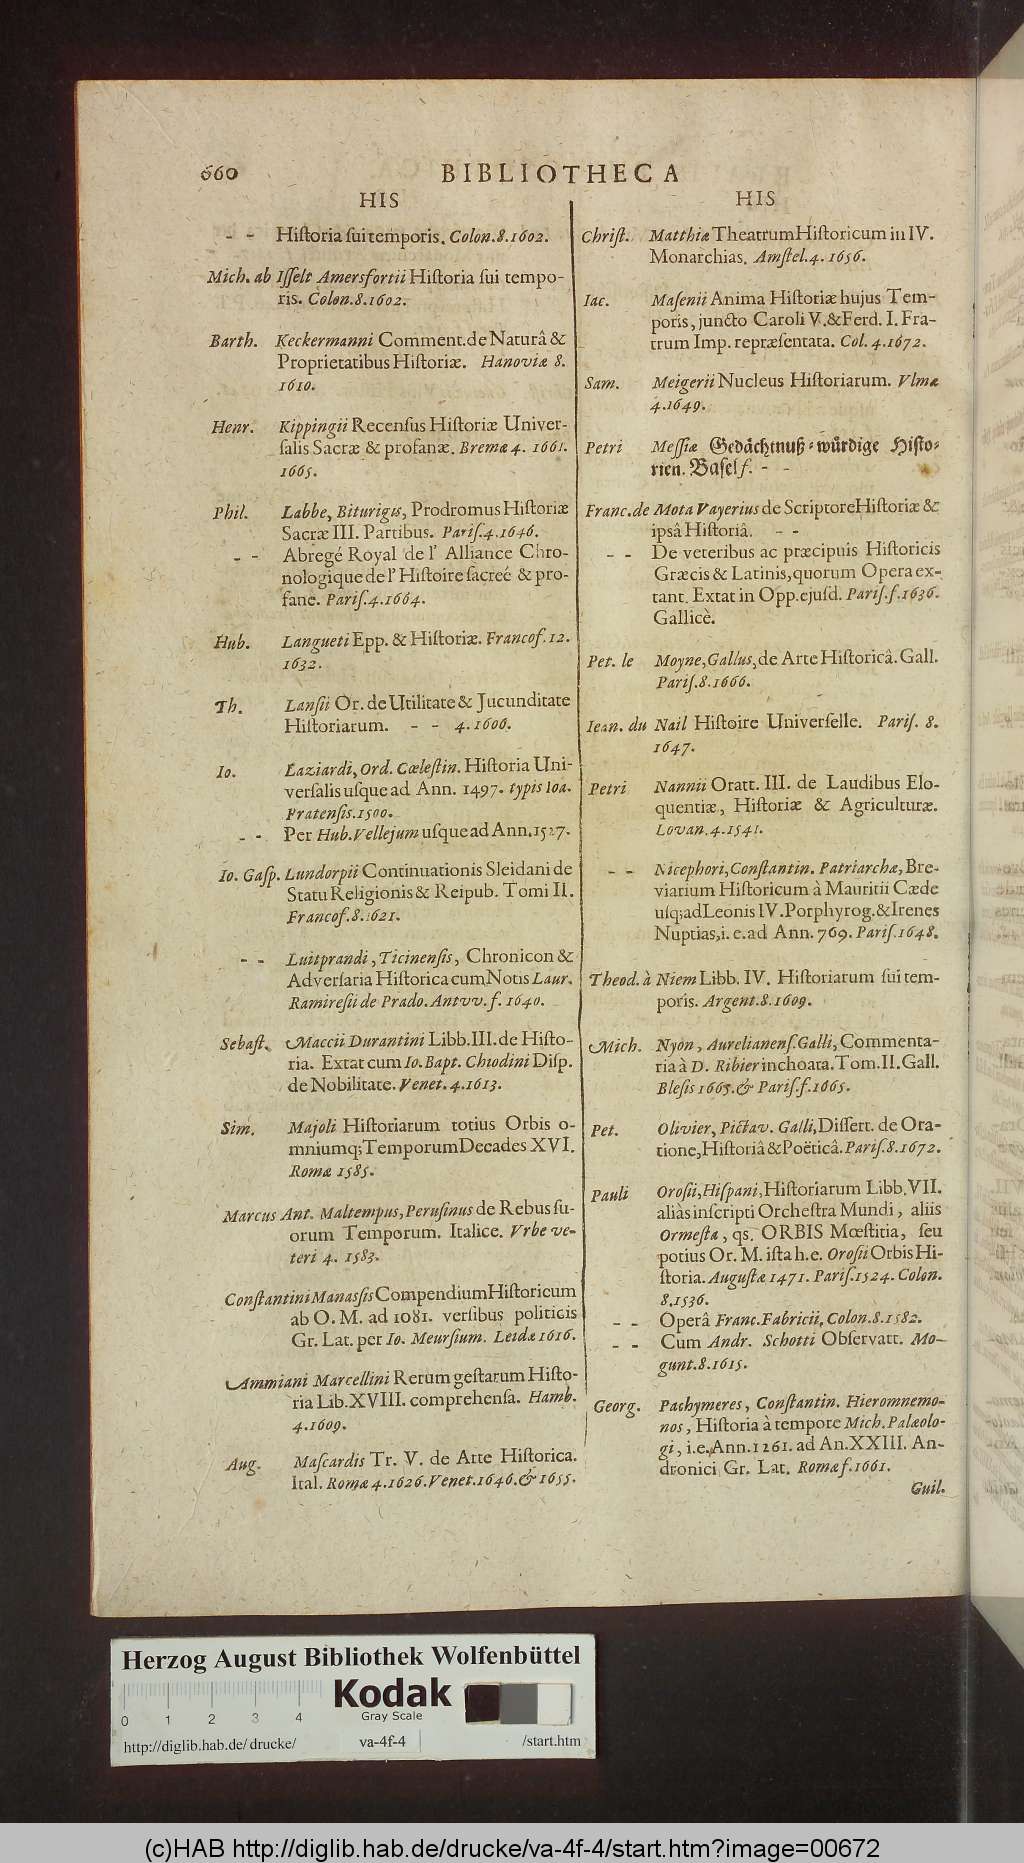 660 BIBLIOTHECA
HIS
- - Hiſtoria ſui temporis. Colon. 8. 1602.
Mich. ab Iſſelt Amersfortii Hiſtoria ſui tempo-
ris. Colon. 8. 1602.
Barth. Keckermanni Comment. de Naturâ &
Proprietatibus Hiſtoriæ. Hanoviæ 8.
1610.
Henr. Kippingii Recenſus Hiſtoriæ Univer-
ſalis Sacræ & profanæ. Bremæ 4. 1661.
1665.
Phil. Labbe, Biturigis, Prodromus Hiſtoriæ
Sacræ III. Partibus. Pariſ. 4. 1646.
- - Abregé Royal de l' Alliance Chro-
nologique de l' Hiſtoire ſacreé & pro-
fane. Pariſ. 4. 1664.
Hub. Langueti Epp. & Hiſtoriæ. Francof. 12.
1632.
Th. Lanſii Or. de Utilitate & Jucunditate
Hiſtoriarum. - - 4. 1606.
Io. Laziardi, Ord. Cœleſtin. Hiſtoria Uni-
verſalis uſque ad Ann. 1497. typis Ioa.
Pratenſis. 1500.
- - Per Hub. Vellejum uſque ad Ann. 1527.
Io. Gaſp. Lundorpii Continuationis Sleidani de
Statu Religionis & Reipub. Tomi II.
Francof. 8. 1621.
- - Luitprandi, Ticinenſis, Chronicon &
Adverſaria Hiſtorica cum Notis Laur.
Ramireſii de Prado. Antvv. f. 1640.
Sebaſt. Maccii Durantini Libb. III. de Hiſto-
ria. Extat cum Io. Bapt. Chiodini Diſp.
de Nobilitate. Venet. 4. 1613.
Sim. Majoli Hiſtoriarum totius Orbis o-
mniumq; Temporum Decades XVI.
Romæ 1585.
Marcus Ant. Maltempus, Peruſinus de Rebus ſu-
orum Temporum. Italice. Vrbe ve-
teri 4. 1583.
Conſtantini Manaſſis Compendium Hiſtoricum
ab O. M. ad 1081. verſibus politicis
Gr. Lat. per Io. Meurſium. Leidæ 1616.
Ammiani Marcellini Rerum geſtarum Hiſto-
ria Lib. XVIII. comprehenſa. Hamb.
4. 1609.
Aug. Maſcardis Tr. V. de Arte Hiſtorica.
Ital. Romæ 4. 1626. Venet. 1646. & 1655.
HIS
Chriſt. Matthiæ Theatrum Hiſtoricum in IV.
Monarchias. Amſtel. 4. 1656.
Iac. Maſenii Anima Hiſtoriæ hujus Tem-
poris, juncto Caroli V. & Ferd. I. Fra-
trum Imp. repræſentata. Col. 4. 1672.
Sam. Meigerii Nucleus Hiſtoriarum. Vlmæ
4. 1649.
Petri Meſſiæ Gedächtnuß-würdige Hiſto-
rien. Baſel f. - -
Franc. de Mota Vayerius de Scriptore Hiſtoriæ &
ipsâ Hiſtoriâ. - -
- - De veteribus ac præcipuis Hiſtoricis
Græcis & Latinis, quorum Opera ex-
tant. Extat in Opp. ejuſd. Pariſ. f. 1636.
Gallicè.
Pet. le Moyne, Gallus, de Arte Hiſtoricâ. Gall.
Pariſ. 8. 1666.
Iean. du Nail Hiſtoire Univerſelle. Pariſ. 8.
1647.
Petri Nannii Oratt. III. de Laudibus Elo-
quentiæ, Hiſtoriæ & Agriculturæ.
Lovan. 4. 1541.
- - Nicephori, Conſtantin. Patriarchæ, Bre-
viarium Hiſtoricum à Mauritii Cæde
uſq; ad Leonis IV. Porphyrog. & Irenes
Nuptias, i. e. ad Ann. 769. Pariſ. 1648.
Theod. à Niem Libb. IV. Hiſtoriarum ſui tem-
poris. Argent. 8. 1609.
Mich. Nyon, Aurelianenſ. Galli, Commenta-
ria à D. Ribier inchoata. Tom. II. Gall.
Bleſis 1665. & Pariſ. f. 1665.
Pet. Olivier, Pictav. Galli, Diſſert. de Ora-
tione, Hiſtoriâ & Poëticâ. Pariſ. 8. 1672.
Pauli Oroſii, Hiſpani, Hiſtoriarum Libb. VII.
aliàs inſcripti Orcheſtra Mundi, aliis
Ormeſta, qs. ORBIS Mœſtitia, ſeu
potius Or. M. iſta h. e. Oroſii Orbis Hi-
ſtoria. Auguſtæ 1471. Pariſ. 1524. Colon.
8. 1536.
- - Operâ Franc. Fabricii, Colon. 8. 1582.
- - Cum Andr. Schotti Obſervatt. Mo-
gunt. 8. 1615.
Georg. Pachymeres, Conſtantin. Hieromnemo-
nos, Hiſtoria à tempore Mich. Palæolo-
gi, i. e. Ann. 1261. ad An. XXIII. An-
dronici Gr. Lat. Romæ f. 1661.
Guil.
Herzog August Bibliothek Wolfenbüttel
Kodak
Gray Scale
0 1 2 3 4
http://diglib.hab.de/drucke/ va-4f-4 /start.htm
(c)HAB http://diglib.hab.de/drucke/va-4f-4/start.htm?image=00672